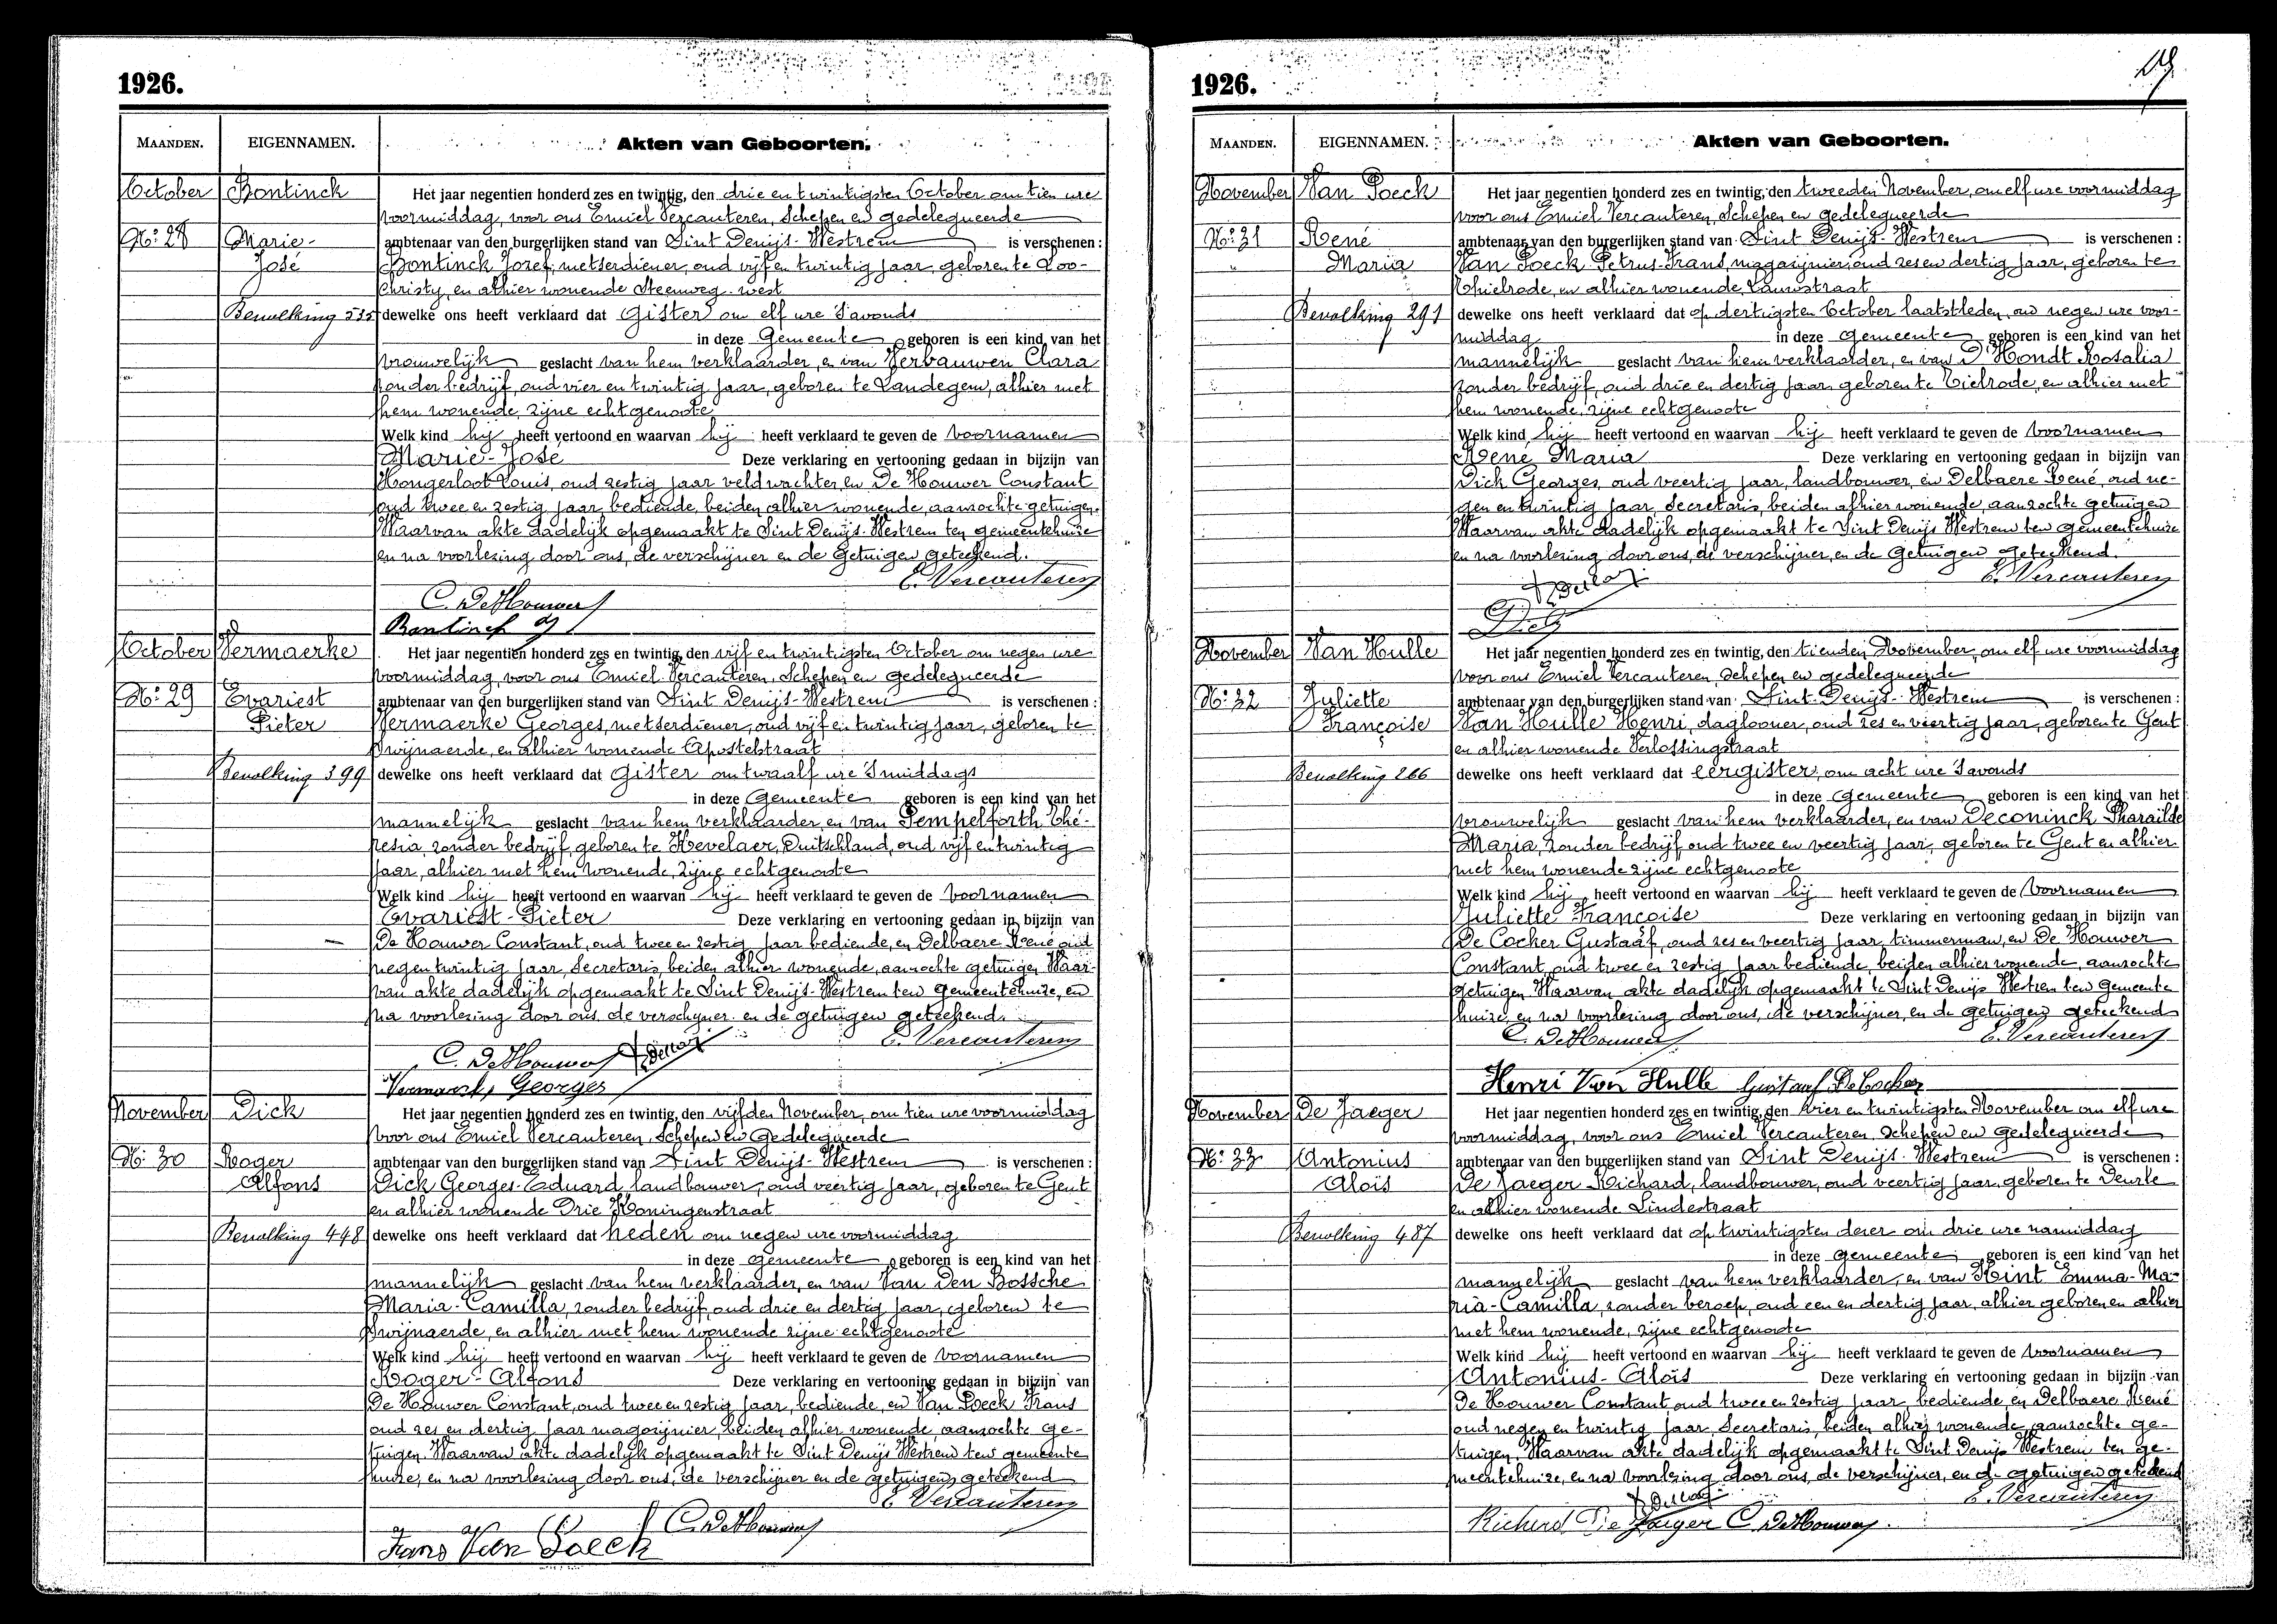 1926.
MAANDEN. EIGENNAMEN. Akten van Geboorten.
October Bontinck Het jaar negentien honderd zes en twintig, den drie en twintigsten October om tien ure
voormiddag, voor ons Emiel Vercauteren, Schepen en gedelegueerde
No: 28 Marie- ambtenaar van den burgerlijken stand van Sint Denijs-Westrem is verschenen:
José Bontinck Jozef, metserdiener, oud vijf en twintig jaar, geboren te Loo-
Christy, en alhier wonende Steenweg-west
Bevolking 535 dewelke ons heeft verklaard dat Gister om elf ure 's avonds
in deze Gemeente geboren is een kind van het
vrouwelijk geslacht van hem verklaarder, en van Verbauwen Clara
zonder bedrijf, oud vier en twintig jaar, geboren te Landegem, alhier met
hem wonende, zijne echtgenoote
Welk kind hij heeft vertoond en waarvan hij heeft verklaard te geven de voornamen
Marie-José Deze verklaring en vertooning gedaan in bijzijn van
Hongerloot Louis, oud zestig jaar veldwachter, en De Houwer Constant
oud twee en zestig jaar, bediende, beiden alhier wonende, aanzochte getuigen.
Waarvan akte dadelijk opgemaakt te Sint Denijs-Westrem ten gemeentehuize
en na voorlezing door ons, de verschijner en de Getuigen geteekend.
E. Vercauteren
C. De Houwer
Bontinck J
October Vermaerke Het jaar negentien honderd zes en twintig, den vijf en twintigsten October om negen ure
voormiddag, voor ons Emiel Vercauteren, Schepen en gedelegueerde
No: 29 Evariest ambtenaar van den burgerlijken stand van Sint Denijs-Westrem is verschenen:
Pieter Vermaerke Georges, metserdiener, oud vijf en twintig jaar, geboren te
Zwijnaerde, en alhier wonende Apostelstraat
Bevolking 399 dewelke ons heeft verklaard dat Gister om twaalf ure 's middags
in deze Gemeente geboren is een kind van het
mannelijk geslacht van hem verklaarder en van Pempelforth Thé-
resia, zonder bedrijf, geboren te Kevelaer, Duitschland, oud vijf en twintig
jaar, alhier met hem wonende, zijne echtgenoote
Welk kind hij heeft vertoond en waarvan hij heeft verklaard te geven de voornamen
Evariest-Pieter Deze verklaring en vertooning gedaan in bijzijn van
De Houwer Constant, oud twee en zestig jaar bediende, en Delbaere René oud
negen twintig jaar, Secretaris, beiden alhier wonende, aanzochte getuigen Waar-
van akte dadelijk opgemaakt te Sint Denijs-Westrem ten gemeentehuize, en
na voorlezing door ons, de verschijner en de getuigen geteekend.
E. Vercauteren
C. De Houwer
Vermaerke Georges
November Dick Het jaar negentien honderd zes en twintig, den vijfden November, om tien ure voormiddag
voor ons Emiel Vercauteren, Schepen en Gedelegueerde
No: 30 Roger ambtenaar van den burgerlijken stand van Sint Denijs-Westrem is verschenen:
Alfons Dick Georges-Eduard landbouwer, oud veertig jaar, geboren te Gent
en alhier wonende Drie Koningenstraat
Bevolking 448 dewelke ons heeft verklaard dat heden om negen ure voormiddag
in deze gemeente geboren is een kind van het
mannelijk geslacht van hem verklaarder, en van Van Den Bossche
Maria-Camilla, zonder bedrijf, oud drie en dertig jaar, geboren te
Zwijnaerde, en alhier met hem wonende zijne echtgenoote
Welk kind hij heeft vertoond en waarvan hij heeft verklaard te geven de voornamen
Roger-Alfons Deze verklaring en vertooning gedaan in bijzijn van
De Houwer Constant, oud twee en zestig jaar, bediende, en Van Poeck Frans
oud zes en dertig jaar magazijnier, beiden alhier wonende, aanzochte ge-
tuigen. Waarvan akte dadelijk opgemaakt te Sint Denijs Westrem ten gemeente
huize, en na voorlezing door ons, de verschijner en de getuigen, geteekend
E. Vercauteren
C. De Houwer
Frans Van Poeck
1926.
19
MAANDEN. EIGENNAMEN. Akten van Geboorten.
November Van Poeck Het jaar negentien honderd zes en twintig, den tweeden November, om elf ure voormiddag
voor ons Emiel Vercauteren, Schepen en gedelegueerde
No: 31 René ambtenaar van den burgerlijken stand van Sint Denijs-Westrem is verschenen:
Maria Van Poeck Petrus-Frans, magazijnier, oud zes en dertig jaar, geboren te
Thielrode, en alhier wonende, Lauwstraat
Bevolking 291 dewelke ons heeft verklaard dat op dertigsten October laatstleden, om negen ure voor-
middag in deze gemeente geboren is een kind van het
mannelijk geslacht van hem verklaarder, en van D'Hondt Rosalia
zonder bedrijf, oud drie en dertig jaar, geboren te Tielrode, en alhier met
hem wonende, zijne echtgenoote
Welk kind hij heeft vertoond en waarvan hij heeft verklaard te geven de voornamen
René Maria Deze verklaring en vertooning gedaan in bijzijn van
Dick Georges, oud veertig jaar, landbouwer, en Delbaere René, oud ne-
gen en twintig jaar, Secretaris, beiden alhier wonende, aanzochte getuigen
Waarvan akte dadelijk opgemaakt te Sint Denijs Westrem ten gemeentehuize
en na voorlezing door ons, de verschijner, en de Getuigen geteekend.
E. Vercauteren
Dick
November Van Hulle Het jaar negentien honderd zes en twintig, den tienden November, om elf ure voormiddag
voor ons Emiel Vercauteren, Schepen en gedelegueerde
No: 32 Juliette ambtenaar van den burgerlijken stand van Sint-Denijs-Westrem is verschenen:
Françoise Van Hulle Henri, daglooner, oud zes en veertig jaar, geboren te Gent
en alhier wonende Verlossingstraat
Bevolking 266 dewelke ons heeft verklaard dat eergister, om acht ure 's avonds
in deze gemeente geboren is een kind van het
vrouwelijk geslacht van hem verklaarder, en van Deconinck Pharaïlde
Maria, zonder bedrijf, oud twee en veertig jaar, geboren te Gent en alhier
met hem wonende zijne echtgenoote
Welk kind hij heeft vertoond en waarvan hij heeft verklaard te geven de voornamen
Juliette Françoise Deze verklaring en vertooning gedaan in bijzijn van
De Cocker Gustaaf, oud zes en veertig jaar, timmerman, en De Houwer
Constant, oud twee en zestig jaar bediende, beiden alhier wonende, aanzochte
getuigen. Waarvan akte dadelijk opgemaakt te Sint Denijs Westrem ten Gemeente
huize, en na voorlezing door ons, de verschijner, en de getuigen geteekend
C. De Houwer E. Vercauteren
Henri Van Hulle Gustaaf De Cocker
November De Jaeger Het jaar negentien honderd zes en twintig, den vier en twintigsten November om elf ure
voormiddag, voor ons Emiel Vercauteren, Schepen en Gedelegueerde
No: 33 Antonius ambtenaar van den burgerlijken stand van Sint Denijs-Westrem is verschenen:
Aloïs De Jaeger Richard, landbouwer, oud veertig jaar, geboren te Deurle
en alhier wonende Lindestraat
Bevolking 487 dewelke ons heeft verklaard dat op twintigsten dezer om drie ure namiddag
in deze gemeente geboren is een kind van het
mannelijk geslacht van hem verklaarder, en van Heint Emma-Ma-
ria-Camilla, zonder beroep, oud een en dertig jaar, alhier geboren en alhier
met hem wonende, zijne echtgenoote
Welk kind hij heeft vertoond en waarvan hij heeft verklaard te geven de voornamen
Antonius-Aloïs Deze verklaring en vertooning gedaan in bijzijn van
De Houwer Constant, oud twee en zestig jaar, bediende, en Delbaere René
oud negen en twintig jaar, Secretaris, beiden alhier wonende aanzochte ge-
tuigen. Waarvan akte dadelijk opgemaakt te Sint Denijs Westrem ten ge-
meentehuize, en na voorlezing door ons, de verschijner, en de getuigen geteekend
E. Vercauteren
Richard De Jaeger C. De Houwer